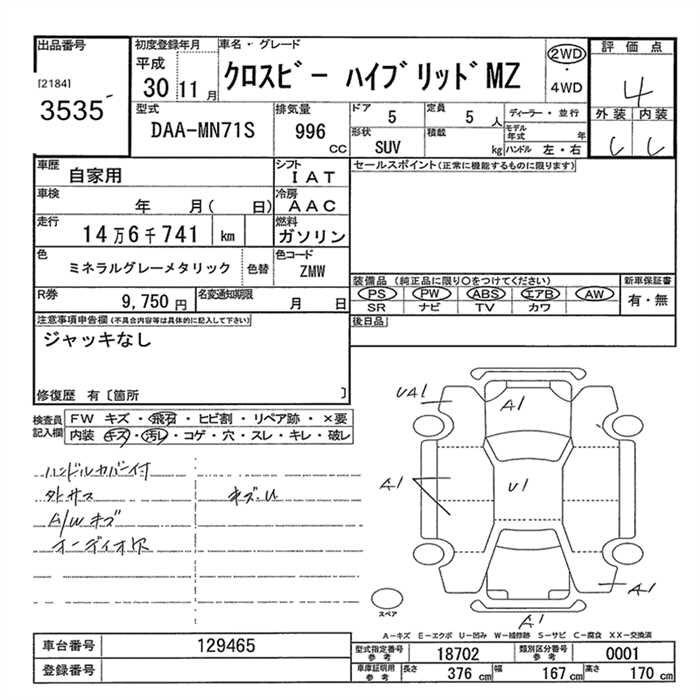 出品番号
[2184]
3535
初度登録年月
平成
30 11 月
車名・グレード
クロスビー ハイブリッドMZ
2WD
・
4WD
評価点
4
外装 内装
C C
型式
DAA-MN71S
排気量
996
CC
ドア 5
定員 5 人
形状 SUV
積載 kg
ディーラー・並行
モデル年式 年
ハンドル 左・右
車歴
自家用
シフト
IAT
セールスポイント(正常に機能するものに限ります)
車検
年 月( 日)
冷房
AAC
走行
14万6千741 km
燃料
ガソリン
色
ミネラルグレーメタリック
色替
色コード
ZMW
装備品 (純正品に限り〇をつけてください)
新車保証書
PS PW ABS エアB AW
SR ナビ TV カワ
有・無
R券
9,750 円
名変通知期限
月 日
後日品
注意事項申告欄(不具合内容等は具体的に記入して下さい)
ジャッキなし
修復歴 有〔箇所 〕
検査員
記入欄
FW キズ・飛石・ヒビ割・リペア跡・×要
内装 キズ・汚レ・コゲ・穴・スレ・キレ・破レ
ハンドルカバー付
外サス
キズ.U
A/Wキズ
オーディオ欠
UA1
A1
A1
U1
A1
A1
スペア
A-キズ E-エクボ U-凹み W-補修跡 S-サビ C-腐食 XX-交換済
車台番号
129465
登録番号
型式指定番号
参考
18702
類別区分番号
参考
0001
車庫証明用
参考
長さ 376 cm
幅 167 cm
高さ 170 cm